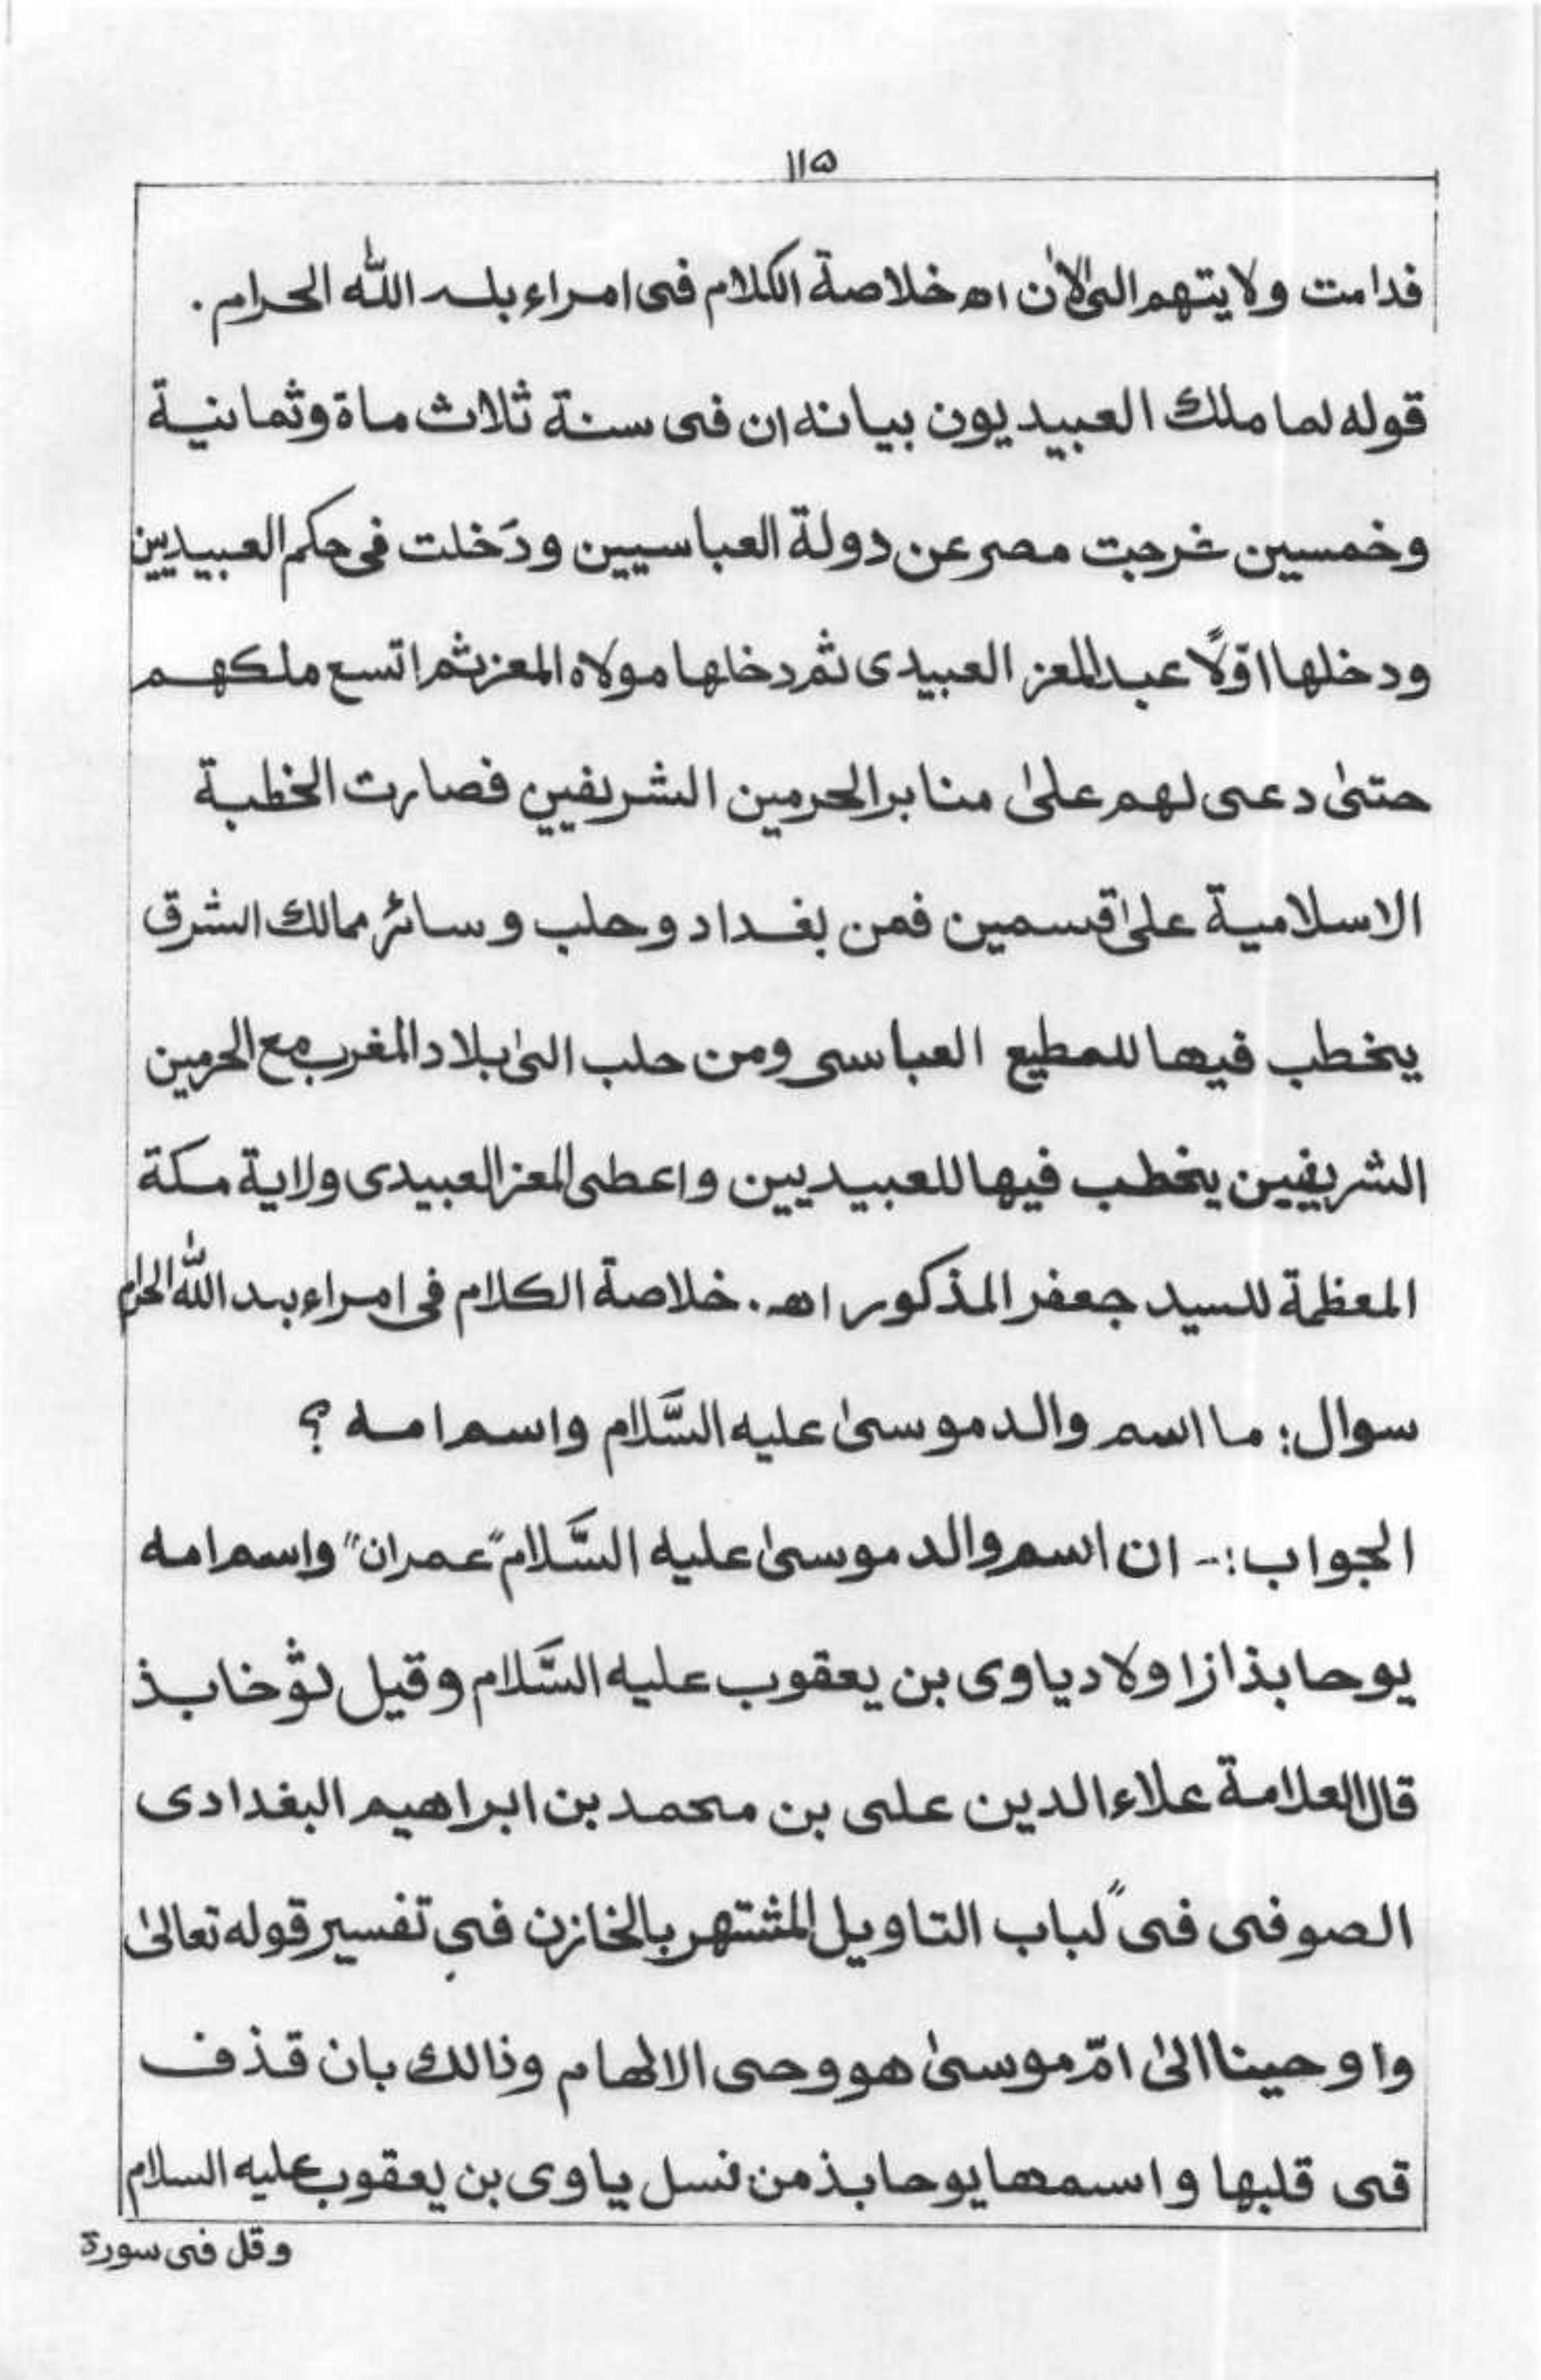 ١١۵
فدامت ولايتهم الى الآن اھ خلاصة الكلام فى امراء بلد الله الحرام.
قوله لما ملك العبيديون بيانه ان فى سنة ثلاث ماة وثمانية
وخمسين خرجت مصر عن دولة العباسيين ودَخلت فى حكم العبيديين
ودخلها اوّلًا عبدالمعز العبيدى ثم دخلها مولاه المعز ثم اتسع ملكهم
حتىٰ دعى لهم علىٰ منابر الحرمين الشريفيين فصارت الخطبة
الاسلامية علىٰ قسمين فمن بغداد وحلب وسائر ممالك الشرق
يخطب فيها للمطيع العباسى ومن حلب الىٰ بلاد المغرب مع الحرمين
الشريفيين يخطب فيها للعبيديين واعطى المعز العبيدى ولاية مكة
المعظمة للسيد جعفر المذكور اھ. خلاصة الكلام فى امراء بد الله الحرام
سوال: ما اسم والد موسىٰ عليه السَّلام واسم امه ؟
الجواب:- ان اسم والد موسىٰ عليه السَّلام "عمران" واسم امه
يوحابذ از اولاد ياوى بن يعقوب عليه السَّلام وقيل لوْخابذ
قال العلامة علاء الدين على بن محمد بن ابراهيم البغدادى
الصوفى فى "لباب التاويل المشتهر بالخازن فى تفسير قوله تعالىٰ
واوحينا الىٰ امّ موسىٰ هو وحى الالهام وذالك بان قذف
قى قلبها واسمها يوحابذ من نسل ياوى بن يعقوب عليه السلام
وقل فى سورة